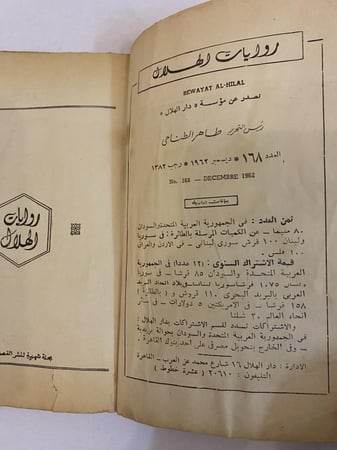 روايات الهلال
REWAYAT AL-HILAL
تصدر عن مؤسسة « دار الهلال »
رئيس التحرير طاهر الطناحي
العدد ١٦٨ * ديسمبر ١٩٦٢ * رجب ١٣٨٢
No. 168 — DECEMBRE 1962
بيانات إدارية
ثمن العدد : في الجمهورية العربية المتحدة والسودان
٨٠ مليما - عن الكميات المرسلة بالطائرة : في سوريا
ولبنان ١٠٠ قرش سوري لبناني - في الاردن والعراق
١٠٠ فلس
قيمة الاشتراك السنوي : ( ١٢ عددا ) في الجمهورية
العربية المتحدة والسودان ٨٥ قرشا - في سوريا
ولبنان ١٠٧٥ قرشا سوريا لبنانيا في بلاد اتحاد البريد
العربي بالبريد البحري ١١٠ قروش و ( بالطائرة )
١٥٨ قرشا - في الامريكتين ٥ دولارات - في سائر
انحاء العالم ٣٠ شلنا
والاشتراكات تسدد لقسم الاشتراكات بدار الهلال :
في الجمهورية العربية المتحدة والسودان بحوالة بريدية
- وفي الخارج بتحويل مصرفي على احد بنوك القاهرة .
الادارة : دار الهلال ١٦ شارع محمد عز العرب - القاهرة
التليفون : ٢٠٦١٠ ( عشرة خطوط )
روايات
الهلال
مجلة شهرية لنشر القصص